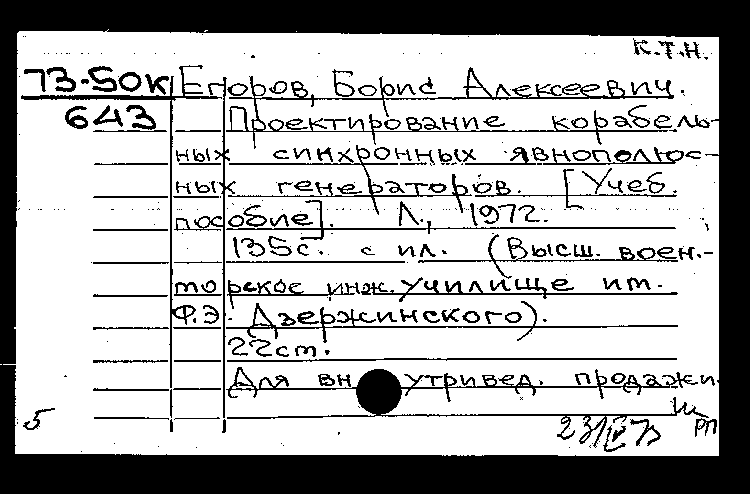 К.Т.Н.
73-50К Егоров, Борис Алексеевич.
643 Проектирование корабель-
ных синхронных явнополюс-
ных генераторов. [Учеб.
пособие]. Л., 1972.
135с. с ил. (Высш. воен.-
морское инж. училище им.
Ф.Э. Дзержинского).
22см.
Для внутривед. продажи.
5
РП